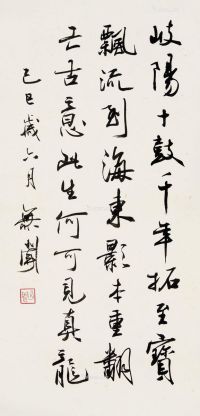 岐陽十鼓千年拓至寶
飄流到海東影本重翻
亡古意此生何可見真龍
己巳歲六月 無聞